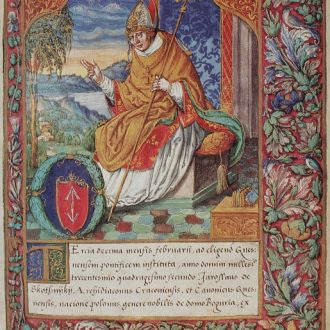 TErcia decima mensis februarii, ad eligend Gnes-
nensem pontificem instituta, anno domini milles
trecentesimo quadragesimo secundo Jaroslaus de
Skothnyky, Archidiaconus Cracoviensis, et Canonicus Gnes-
nensis, nacione polonus genere nobilis de domo Boguria, ex